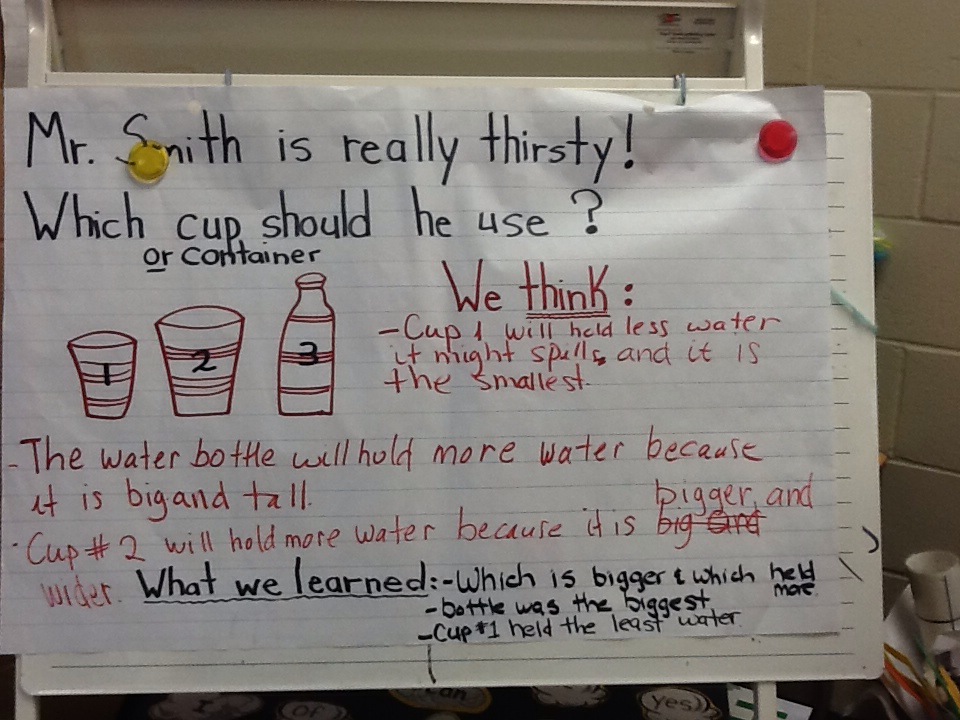 Mr. Smith is really thirsty!
Which cup should he use?
or container
1 2 3
We think:
- Cup 1 will hold less water
it might spills, and it is
the smallest.
- The water bottle will hold more water because
it is big and tall.
bigger, and
· Cup # 2 will hold more water because it is big and
wider.
What we learned: - Which is bigger & which held
more.
- bottle was the biggest
- Cup #1 held the least water.
of
can
yes